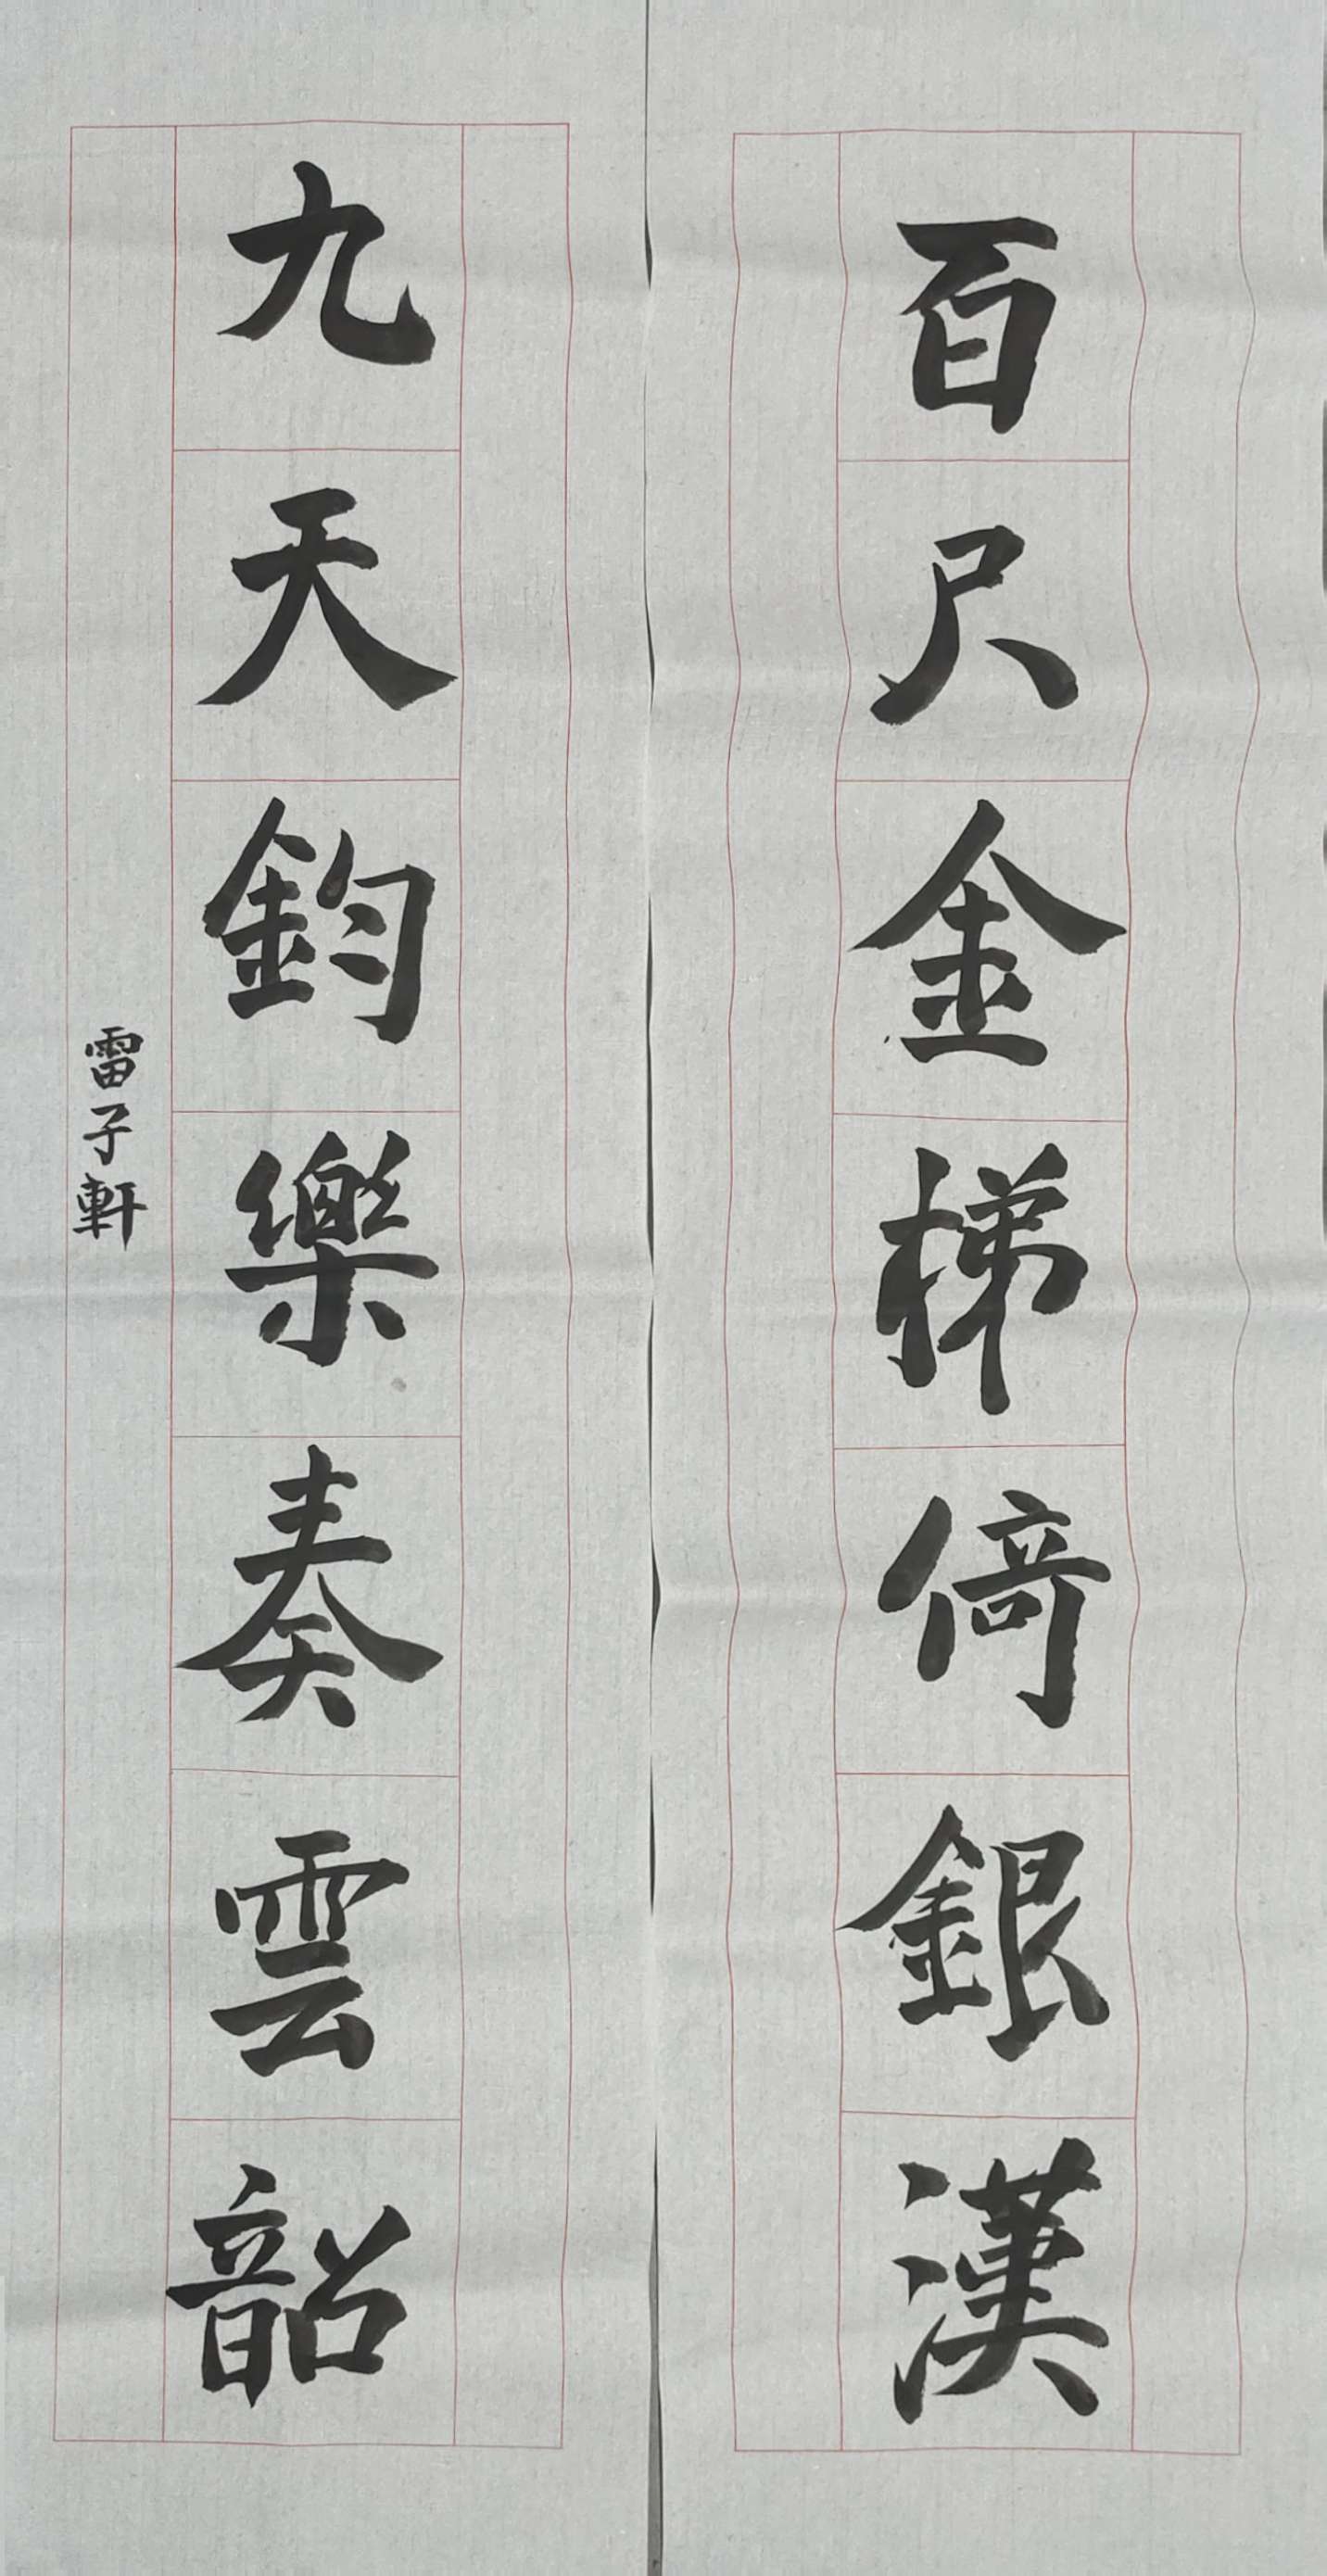 百尺金梯倚銀漢
九天鈞樂奏雲韶
雷子軒